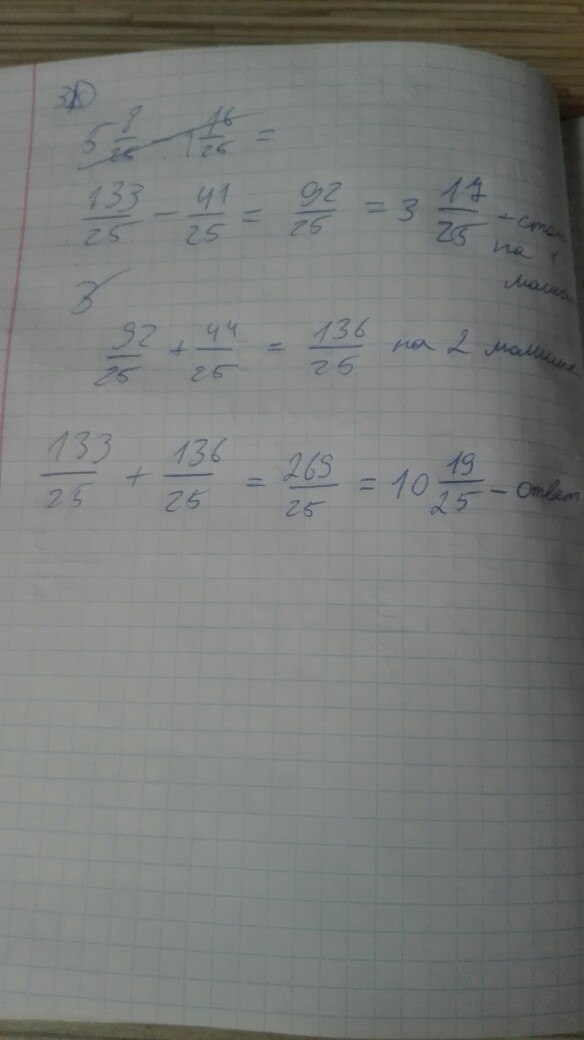 5 8/25 1 16/25 =
133/25 - 41/25 = 92/25 = 3 17/25 -
на 1
92/25 + 44/25 = 136/25 на 2 машине
133/25 + 136/25 = 269/25 = 10 19/25 - ответ